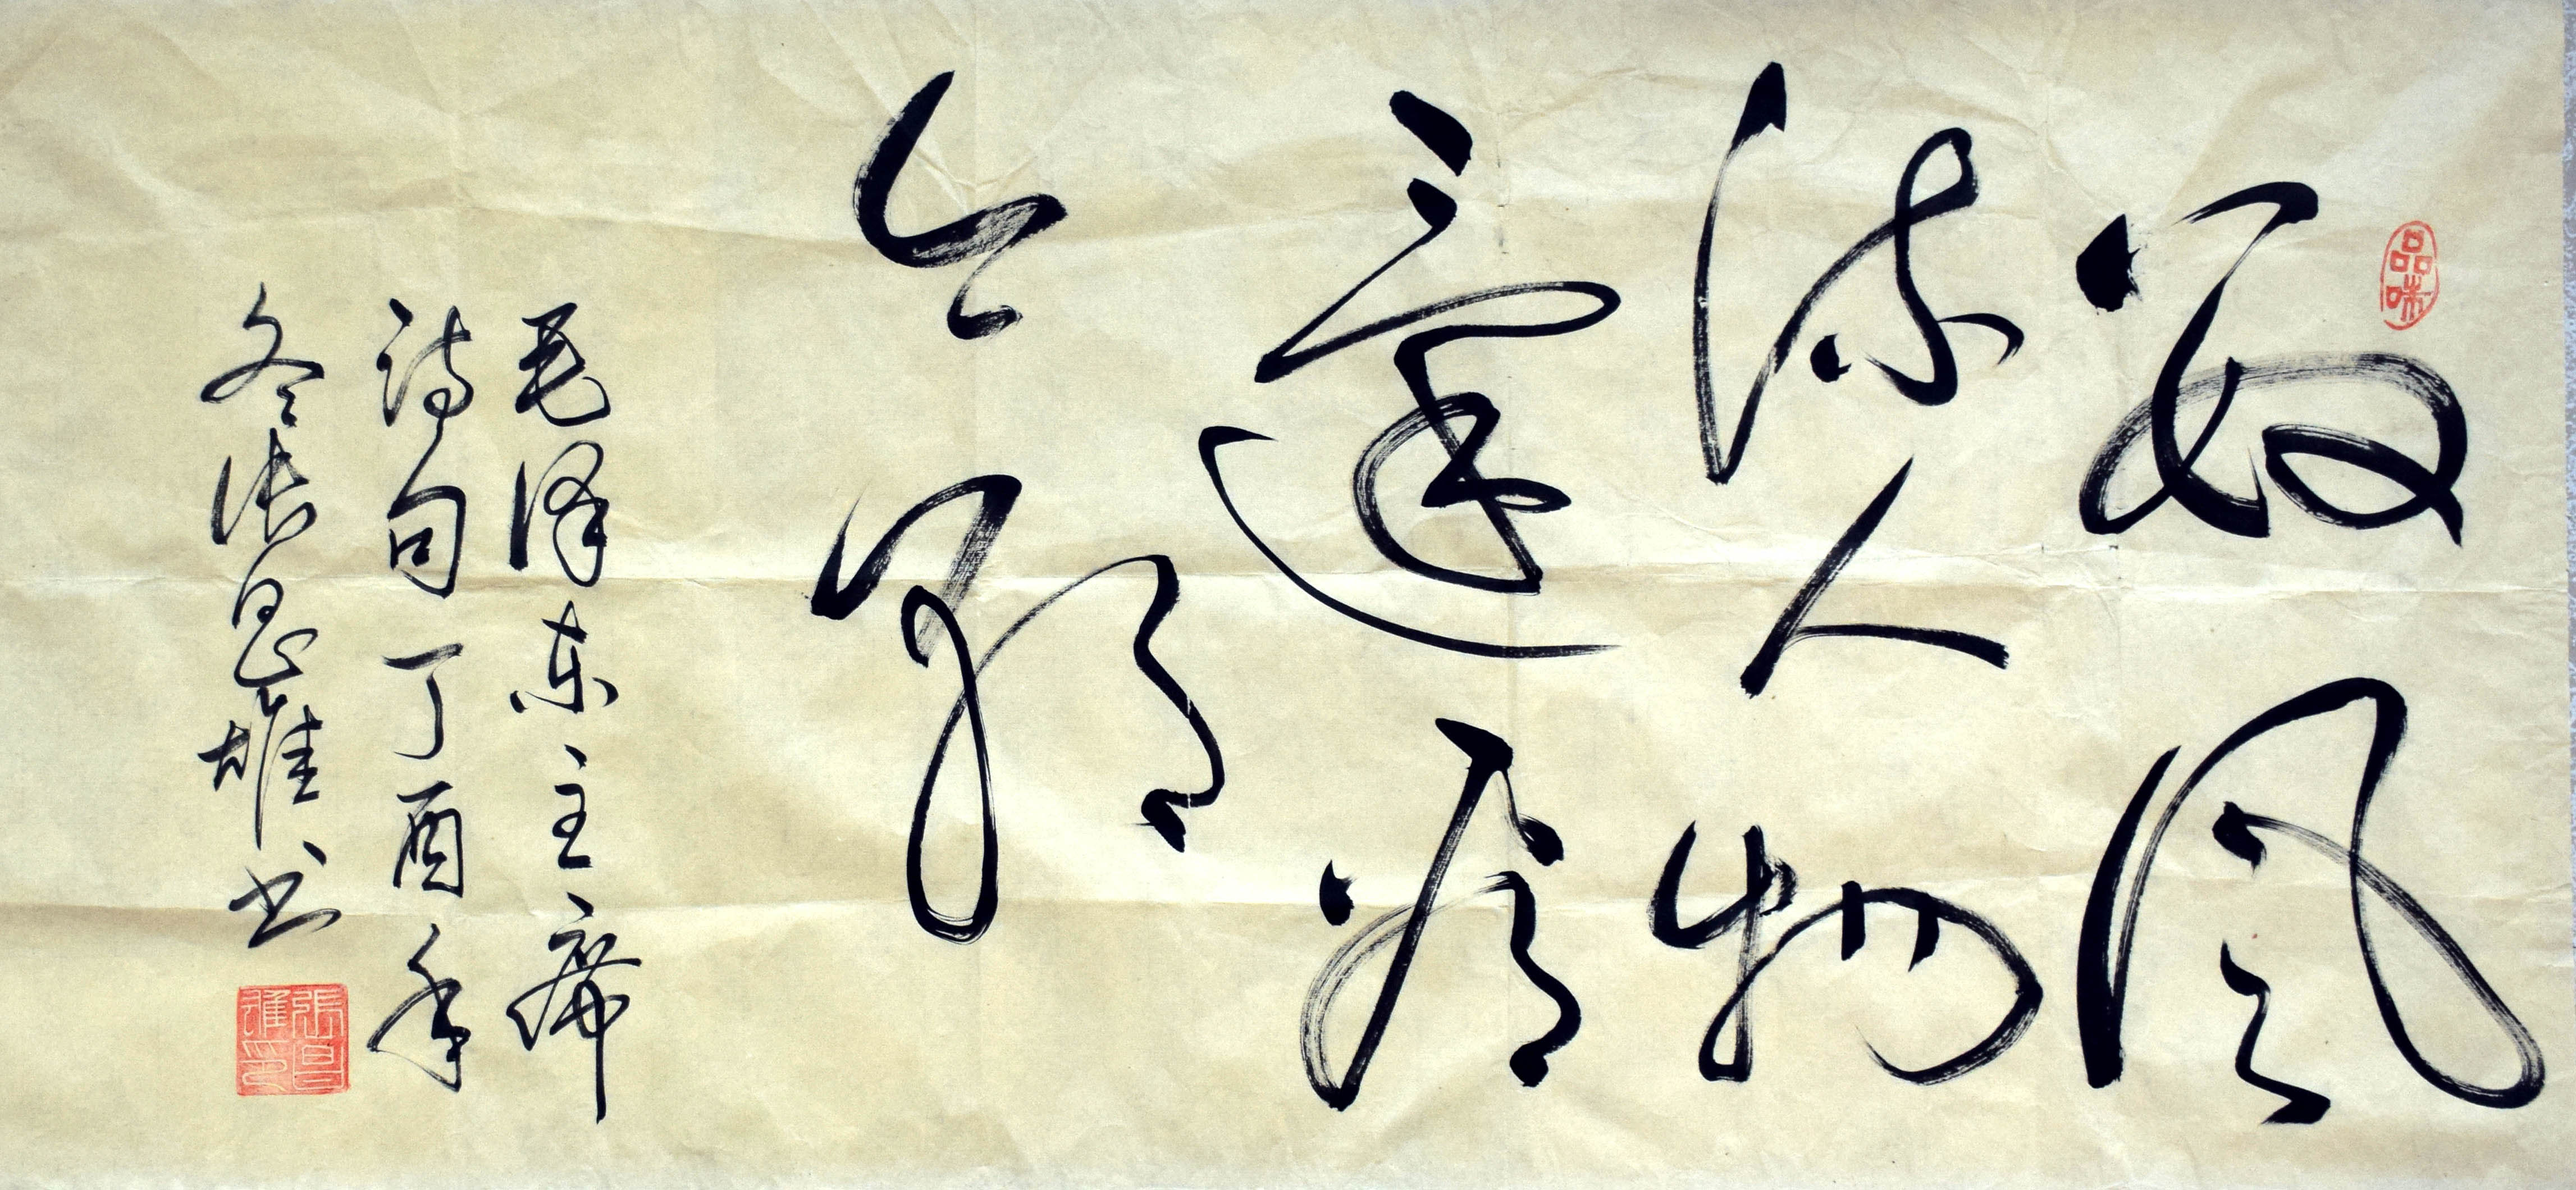 品味
数风
流人物
还看
今朝
毛泽东主席
诗句丁酉年
冬张昌雄书
張昌雄印